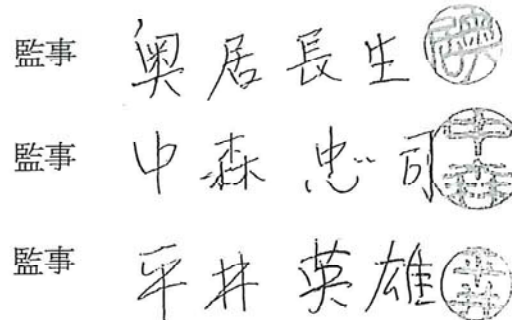 監事 奥居長生
監事 中森忠司 中森
監事 平井英雄 平井